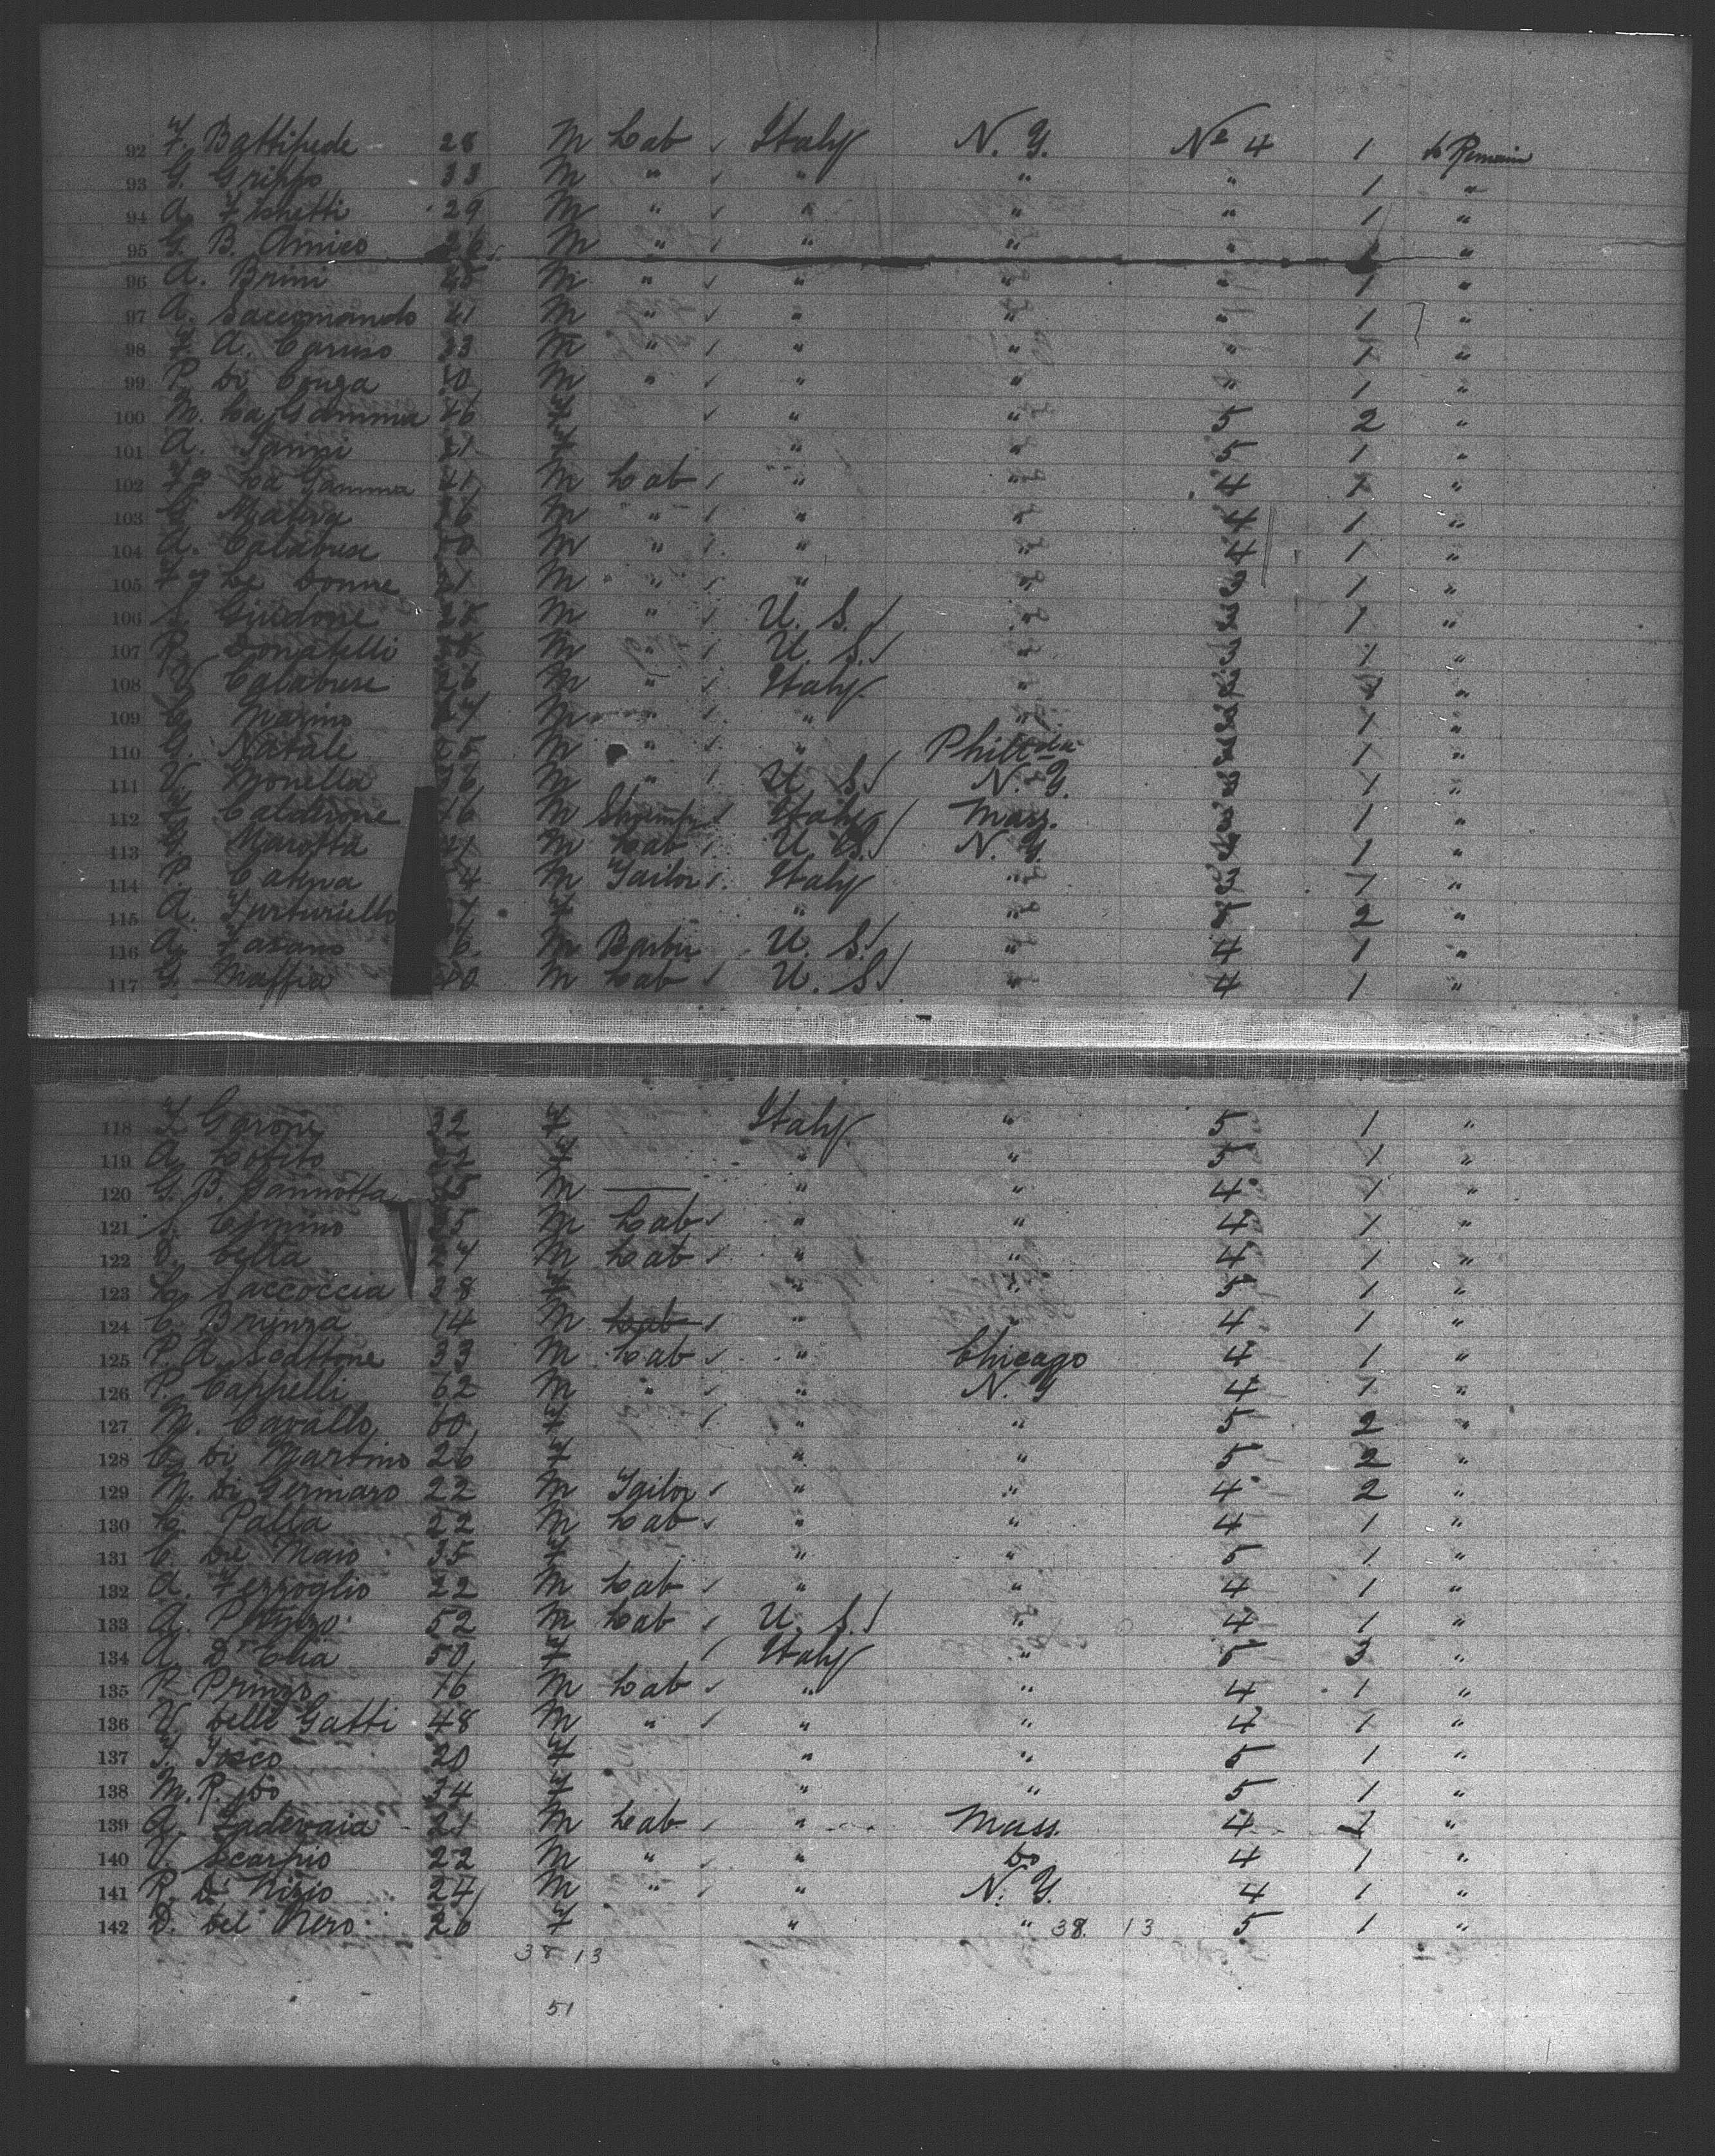 92 F. Battipede 28 M Lab ✓ Italy N. Y. No 4 1 to Remain
93 G. Grippo 33 M " ✓ " " " 1 "
94 A. Fishetti 29 M " ✓ " " " 1 "
95 G. B. Amico 26 M " ✓ " " " 1 "
96 A. Brini M " ✓ " " " 1 "
97 A. Saccomando 41 M " ✓ " " " 1 "
98 F. A. Caruso 33 M " ✓ " " " 1 "
99 P. Di Conza M " ✓ " " " 1 "
100 M. La Gamma 46 F ✓ " " 5 2 "
101 A. Ianni 21 F " " 5 1 "
102 La Gamma 41 M Lab ✓ " " 4 1 "
103 G. M " ✓ " " 4 1 "
104 A. Calabrese M " ✓ " " 4 1 "
105 Le Donne M " ✓ " " 1 "
106 S. Guedone 28 M " U. S. ✓ " 1 "
107 R. Donatelli M " ✓ U. S. ✓ " 3 1 "
108 V. Calabrese 26 M " ✓ Italy " "
109 C. Marino M " ✓ " " 1 "
110 G. Natale M " ✓ " Philadela 1 "
111 V. Monella 36 M " U. S. ✓ N. Y. 3 1 "
112 F. Calderone 16 M Italy ✓ Mass. 3 1 "
113 G. Marotta 41 M Lab U. S. ✓ N. Y. 1 "
114 P. Catena 4 M Tailor ✓ Italy " 3 1 "
115 A. Turturiello F " " 2 "
116 A. Fasano 6 M Barber U. S. ✓ " 4 1 "
117 G. Maffia 40 M Lab ✓ U. S. ✓ " 4 1 "
118 F. Garone 32 F Italy " 5 1 "
119 A. Lobito 22 F " " 5 1 "
120 G. B. Iannotta M — " " 4 1 "
121 S. Cimino M Lab ✓ " " 4 1 "
122 D. Cella M Lab ✓ " " 4 1 "
123 L. Saccoccia 28 F " " 5 1 "
124 C. Brienza 14 M Lab ✓ " " 4 1 "
125 P. A. Scattone 33 M Lab ✓ " Chicago 4 1 "
126 P. Cappelli 62 M " ✓ " N. Y 4 1 "
127 M. Cavallo 60 F ✓ " " 5 2 "
128 C. Di Martino 26 F " " 5 2 "
129 M. Di Germaro 22 M Tailor ✓ " " 4 2 "
130 L. Palla 22 M Lab ✓ " " 4 1 "
131 C. De Maio 35 F " " 5 1 "
132 A. Ferroglio 22 M Lab ✓ " " 4 1 "
133 A. 52 M Lab ✓ U. S. ✓ " 4 1 "
134 A. D'Elia 50 F ✓ Italy " 5 3 "
135 R. Prinzo 16 M Lab ✓ " " 4 1 "
136 V. Delli Gatti 48 M " ✓ " " 4 1 "
137 T. Tosco 20 F " " 5 1 "
138 M. R. Do 34 F " " 5 1 "
139 A. Ladevaia 21 M Lab ✓ " Mass. 4 1 "
140 V. Scarpio 22 M " ✓ " Do 4 1 "
141 R. Di Nizio 24 M " ✓ " N. Y. 4 1 "
142 D. Del Nero 26 F " " 38. 13 5 1 "
38 13
51